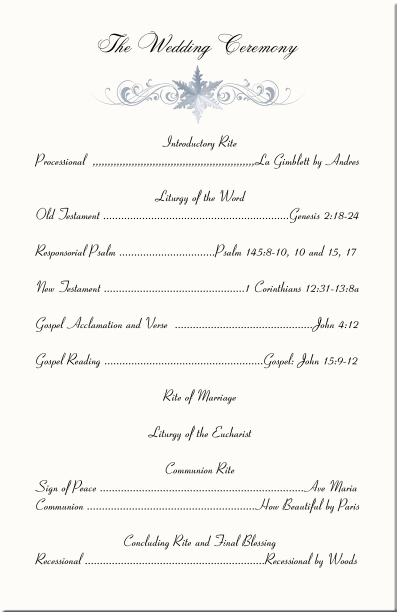 The Wedding Ceremony
Introductory Rite
Processional ,,,,,,,,,,,,,,,,,,,,,,,,,,,,,,,,,,,,,,,,,,,,,,,,,,,,,La Gimblett by Andres
Liturgy of the Word
Old Testament ..............................................................Genesis 2:18-24
Responsorial Psalm ................................Psalm 145:8-10, 10 and 15, 17
New Testament ...............................................1 Corinthians 12:31-13:8a
Gospel Acclamation and Verse ..............................................John 4:12
Gospel Reading .....................................................Gospel: John 15:9-12
Rite of Marriage
Liturgy of the Eucharist
Communion Rite
Sign of Peace ....................................................................Ave Maria
Communion .........................................................How Beautiful by Paris
Concluding Rite and Final Blessing
Recessional ............................................................Recessional by Woods